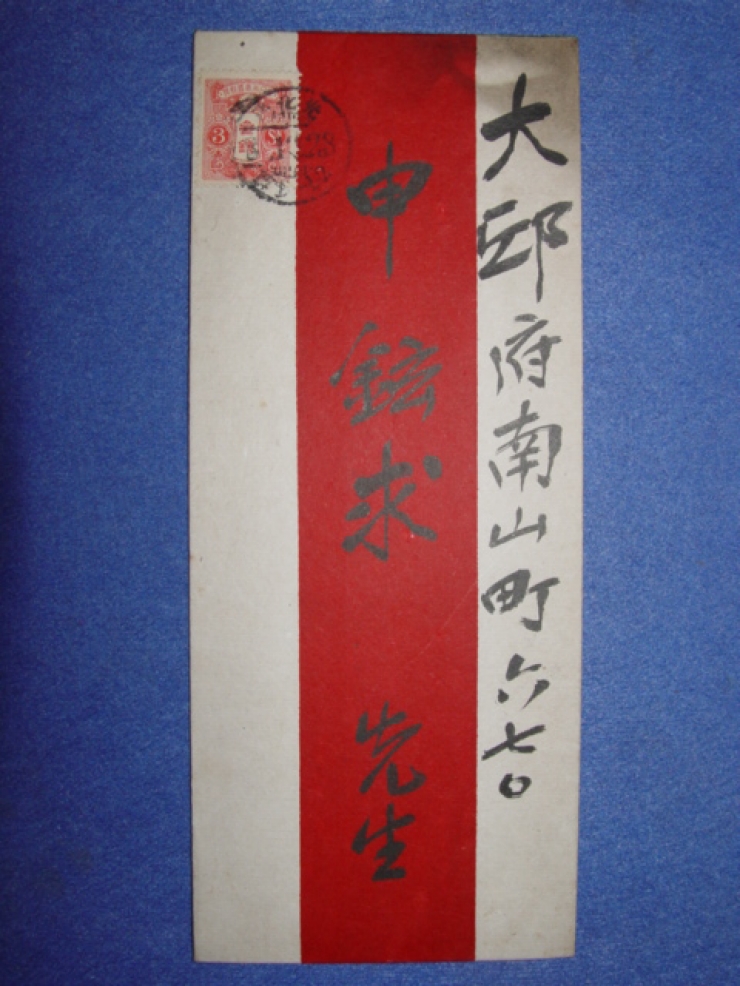 大邱府南山町六七〇
申鉉求 先生
3